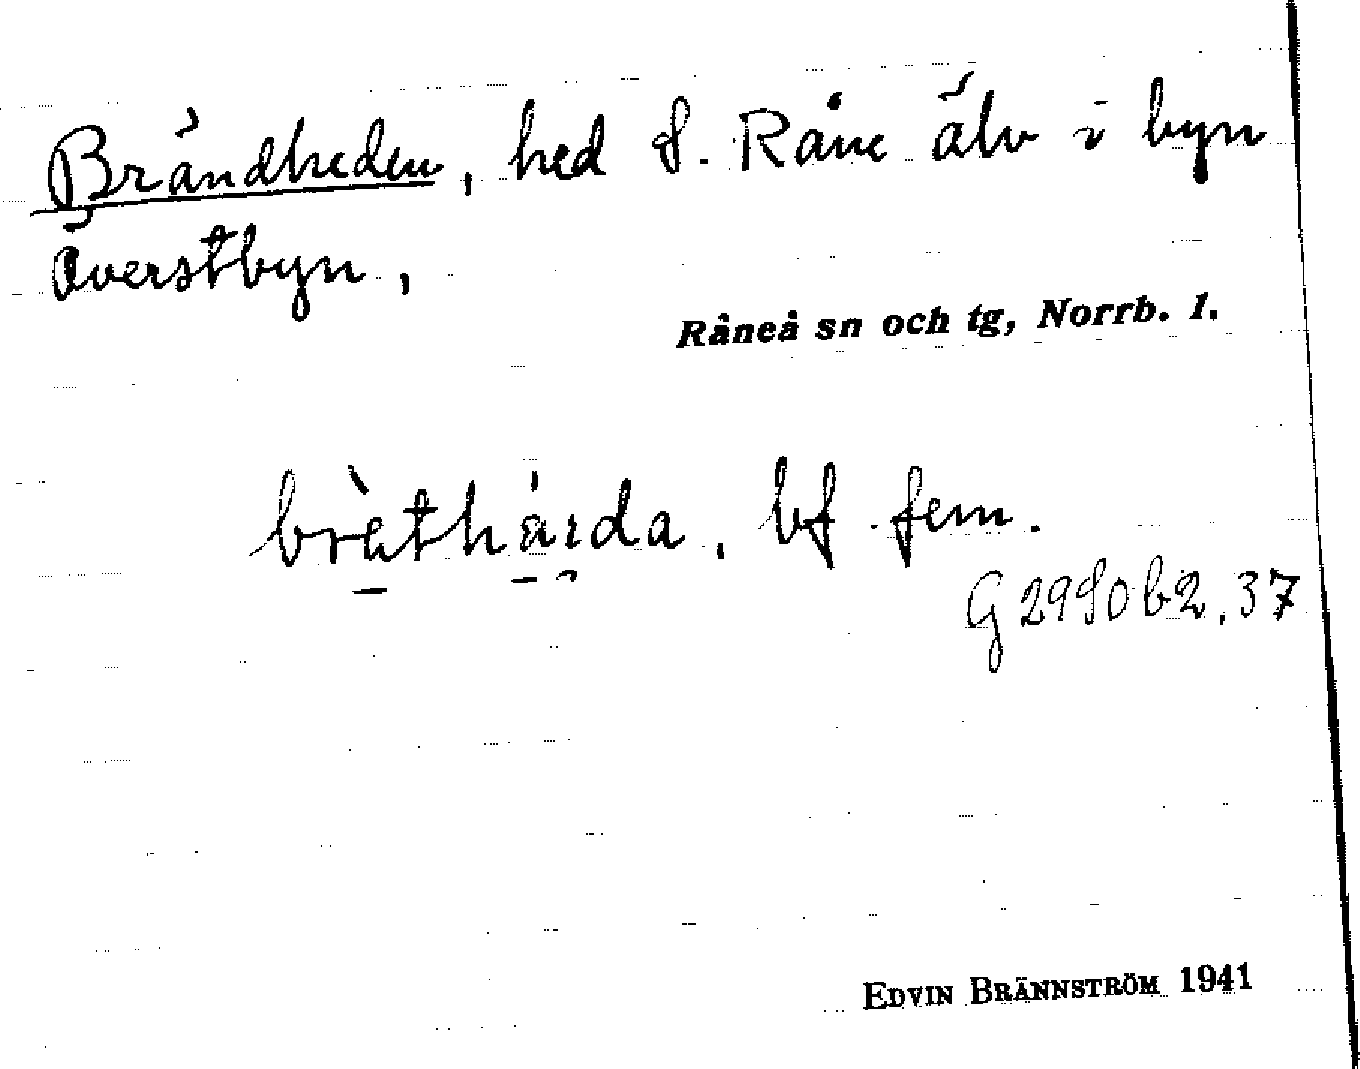 Brändheden, hed S. Råne älv i byn
Överstbyn,
Råneå sn och tg, Norrb. l.
brèthárda, bf fem.
G 2980 b2. 37
EDVIN BRÄNNSTRÖM 1941